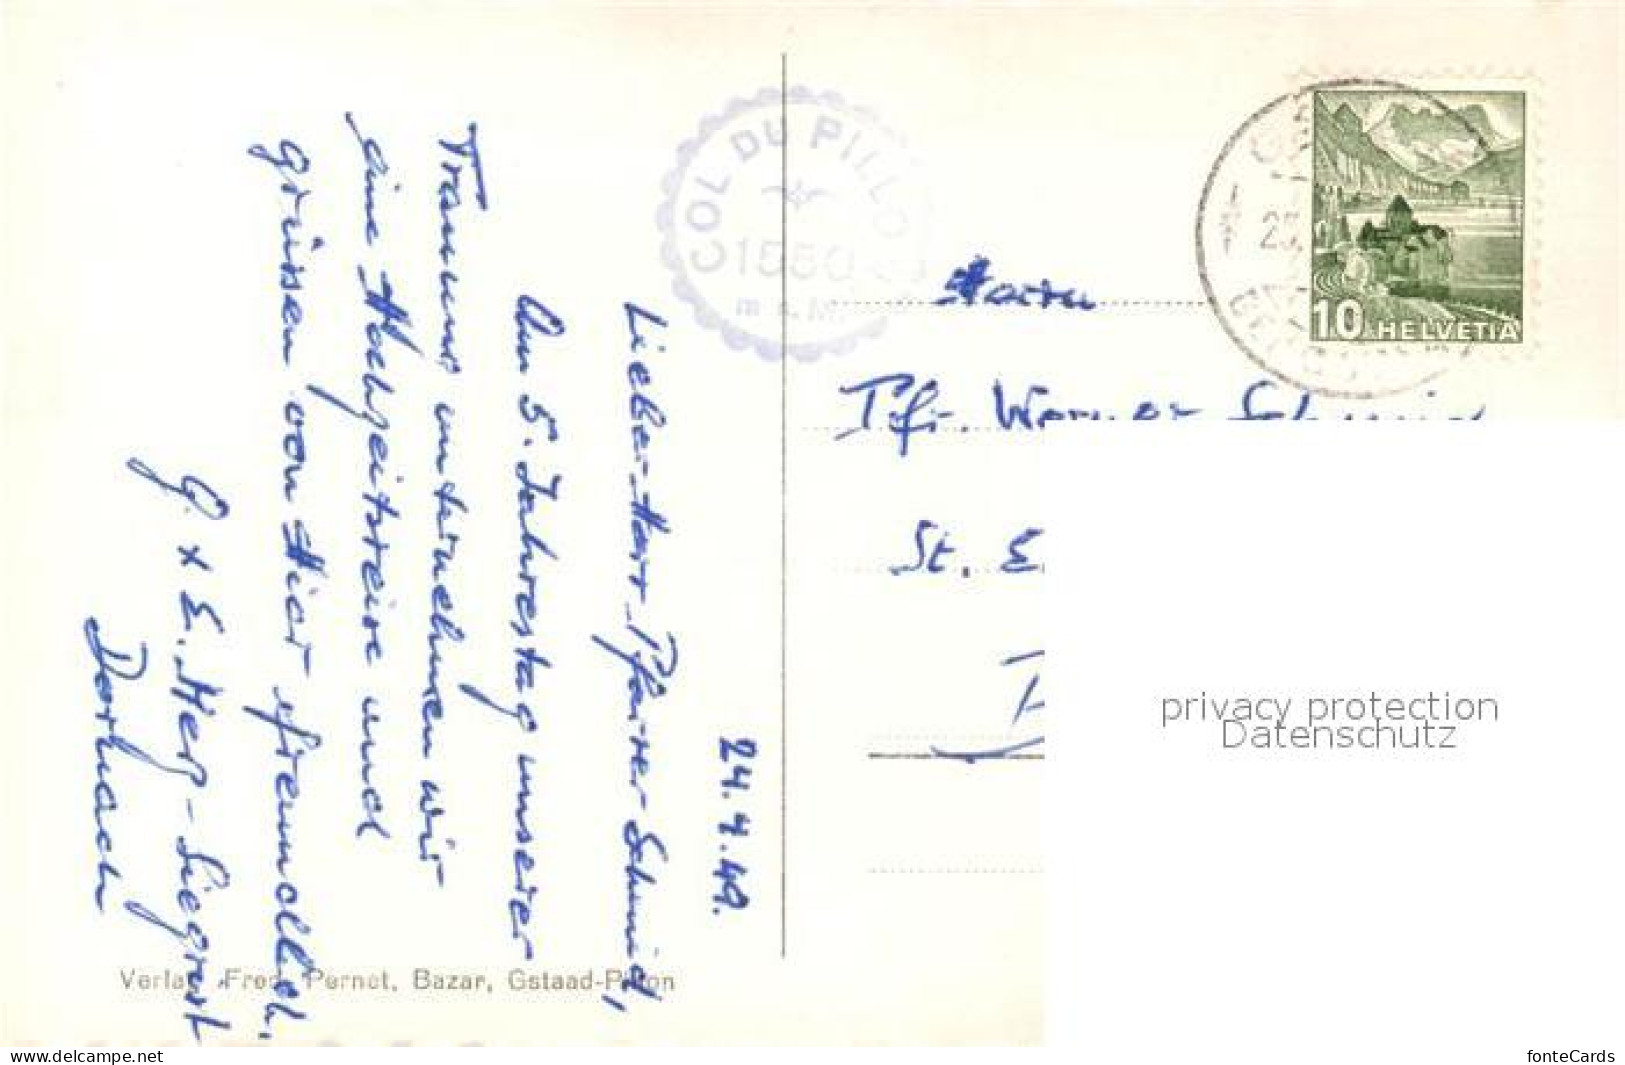 24.4.49.
Lieber Herr Pfarrer Schmid,
Am 5. Jahrestag unserer
Trauung unternehmen wir
eine Hochzeitsreise und
grüssen von hier freundlich.
G. + E. Heß-Siegrist
Dornach
COL DU PILLO
1550
m
Herrn
Pfr. Werner
St.
10 HELVETIA
Verlag Fred Pernet, Bazar, Gstaad-Pillon
privacy protection
Datenschutz
www.delcampe.net
fonteCards